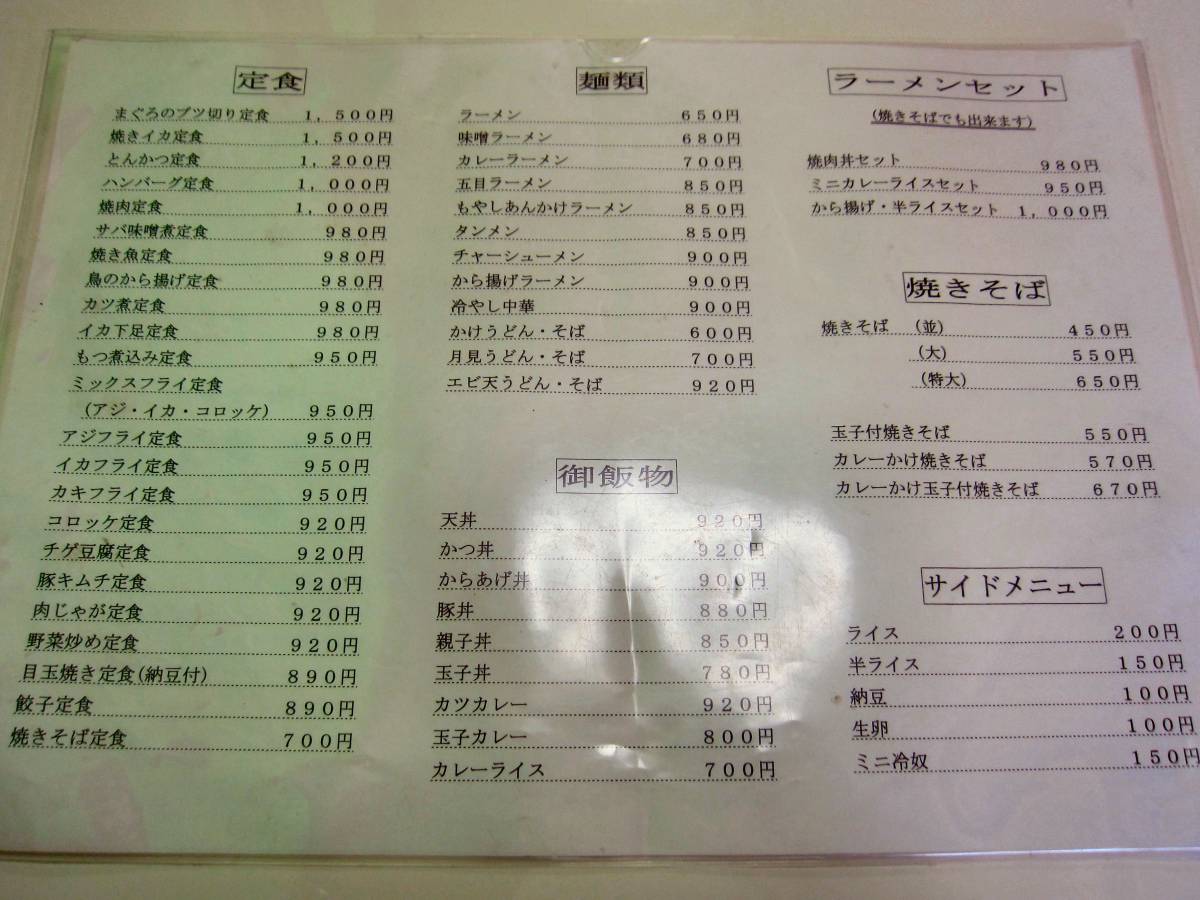 定食
まぐろのブツ切り定食 1,500円
焼きイカ定食 1,500円
とんかつ定食 1,200円
ハンバーグ定食 1,000円
焼肉定食 1,000円
サバ味噌煮定食 980円
焼き魚定食 980円
鳥のから揚げ定食 980円
カツ煮定食 980円
イカ下足定食 980円
もつ煮込み定食 950円
ミックスフライ定食
(アジ・イカ・コロッケ) 950円
アジフライ定食 950円
イカフライ定食 950円
カキフライ定食 950円
コロッケ定食 920円
チゲ豆腐定食 920円
豚キムチ定食 920円
肉じゃが定食 920円
野菜炒め定食 920円
目玉焼き定食(納豆付) 890円
餃子定食 890円
焼きそば定食 700円
麺類
ラーメン 650円
味噌ラーメン 680円
カレーラーメン 700円
五目ラーメン 850円
もやしあんかけラーメン 850円
タンメン 850円
チャーシューメン 900円
から揚げラーメン 900円
冷やし中華 900円
かけうどん・そば 600円
月見うどん・そば 700円
エビ天うどん・そば 920円
御飯物
天丼 920円
かつ丼 920円
からあげ丼 900円
豚丼 880円
親子丼 850円
玉子丼 780円
カツカレー 920円
玉子カレー 800円
カレーライス 700円
ラーメンセット
(焼きそばでも出来ます)
焼肉丼セット 980円
ミニカレーライスセット 950円
から揚げ・半ライスセット 1,000円
焼きそば
焼きそば (並) 450円
(大) 550円
(特大) 650円
玉子付焼きそば 550円
カレーかけ焼きそば 570円
カレーかけ玉子付焼きそば 670円
サイドメニュー
ライス 200円
半ライス 150円
納豆 100円
生卵 100円
ミニ冷奴 150円